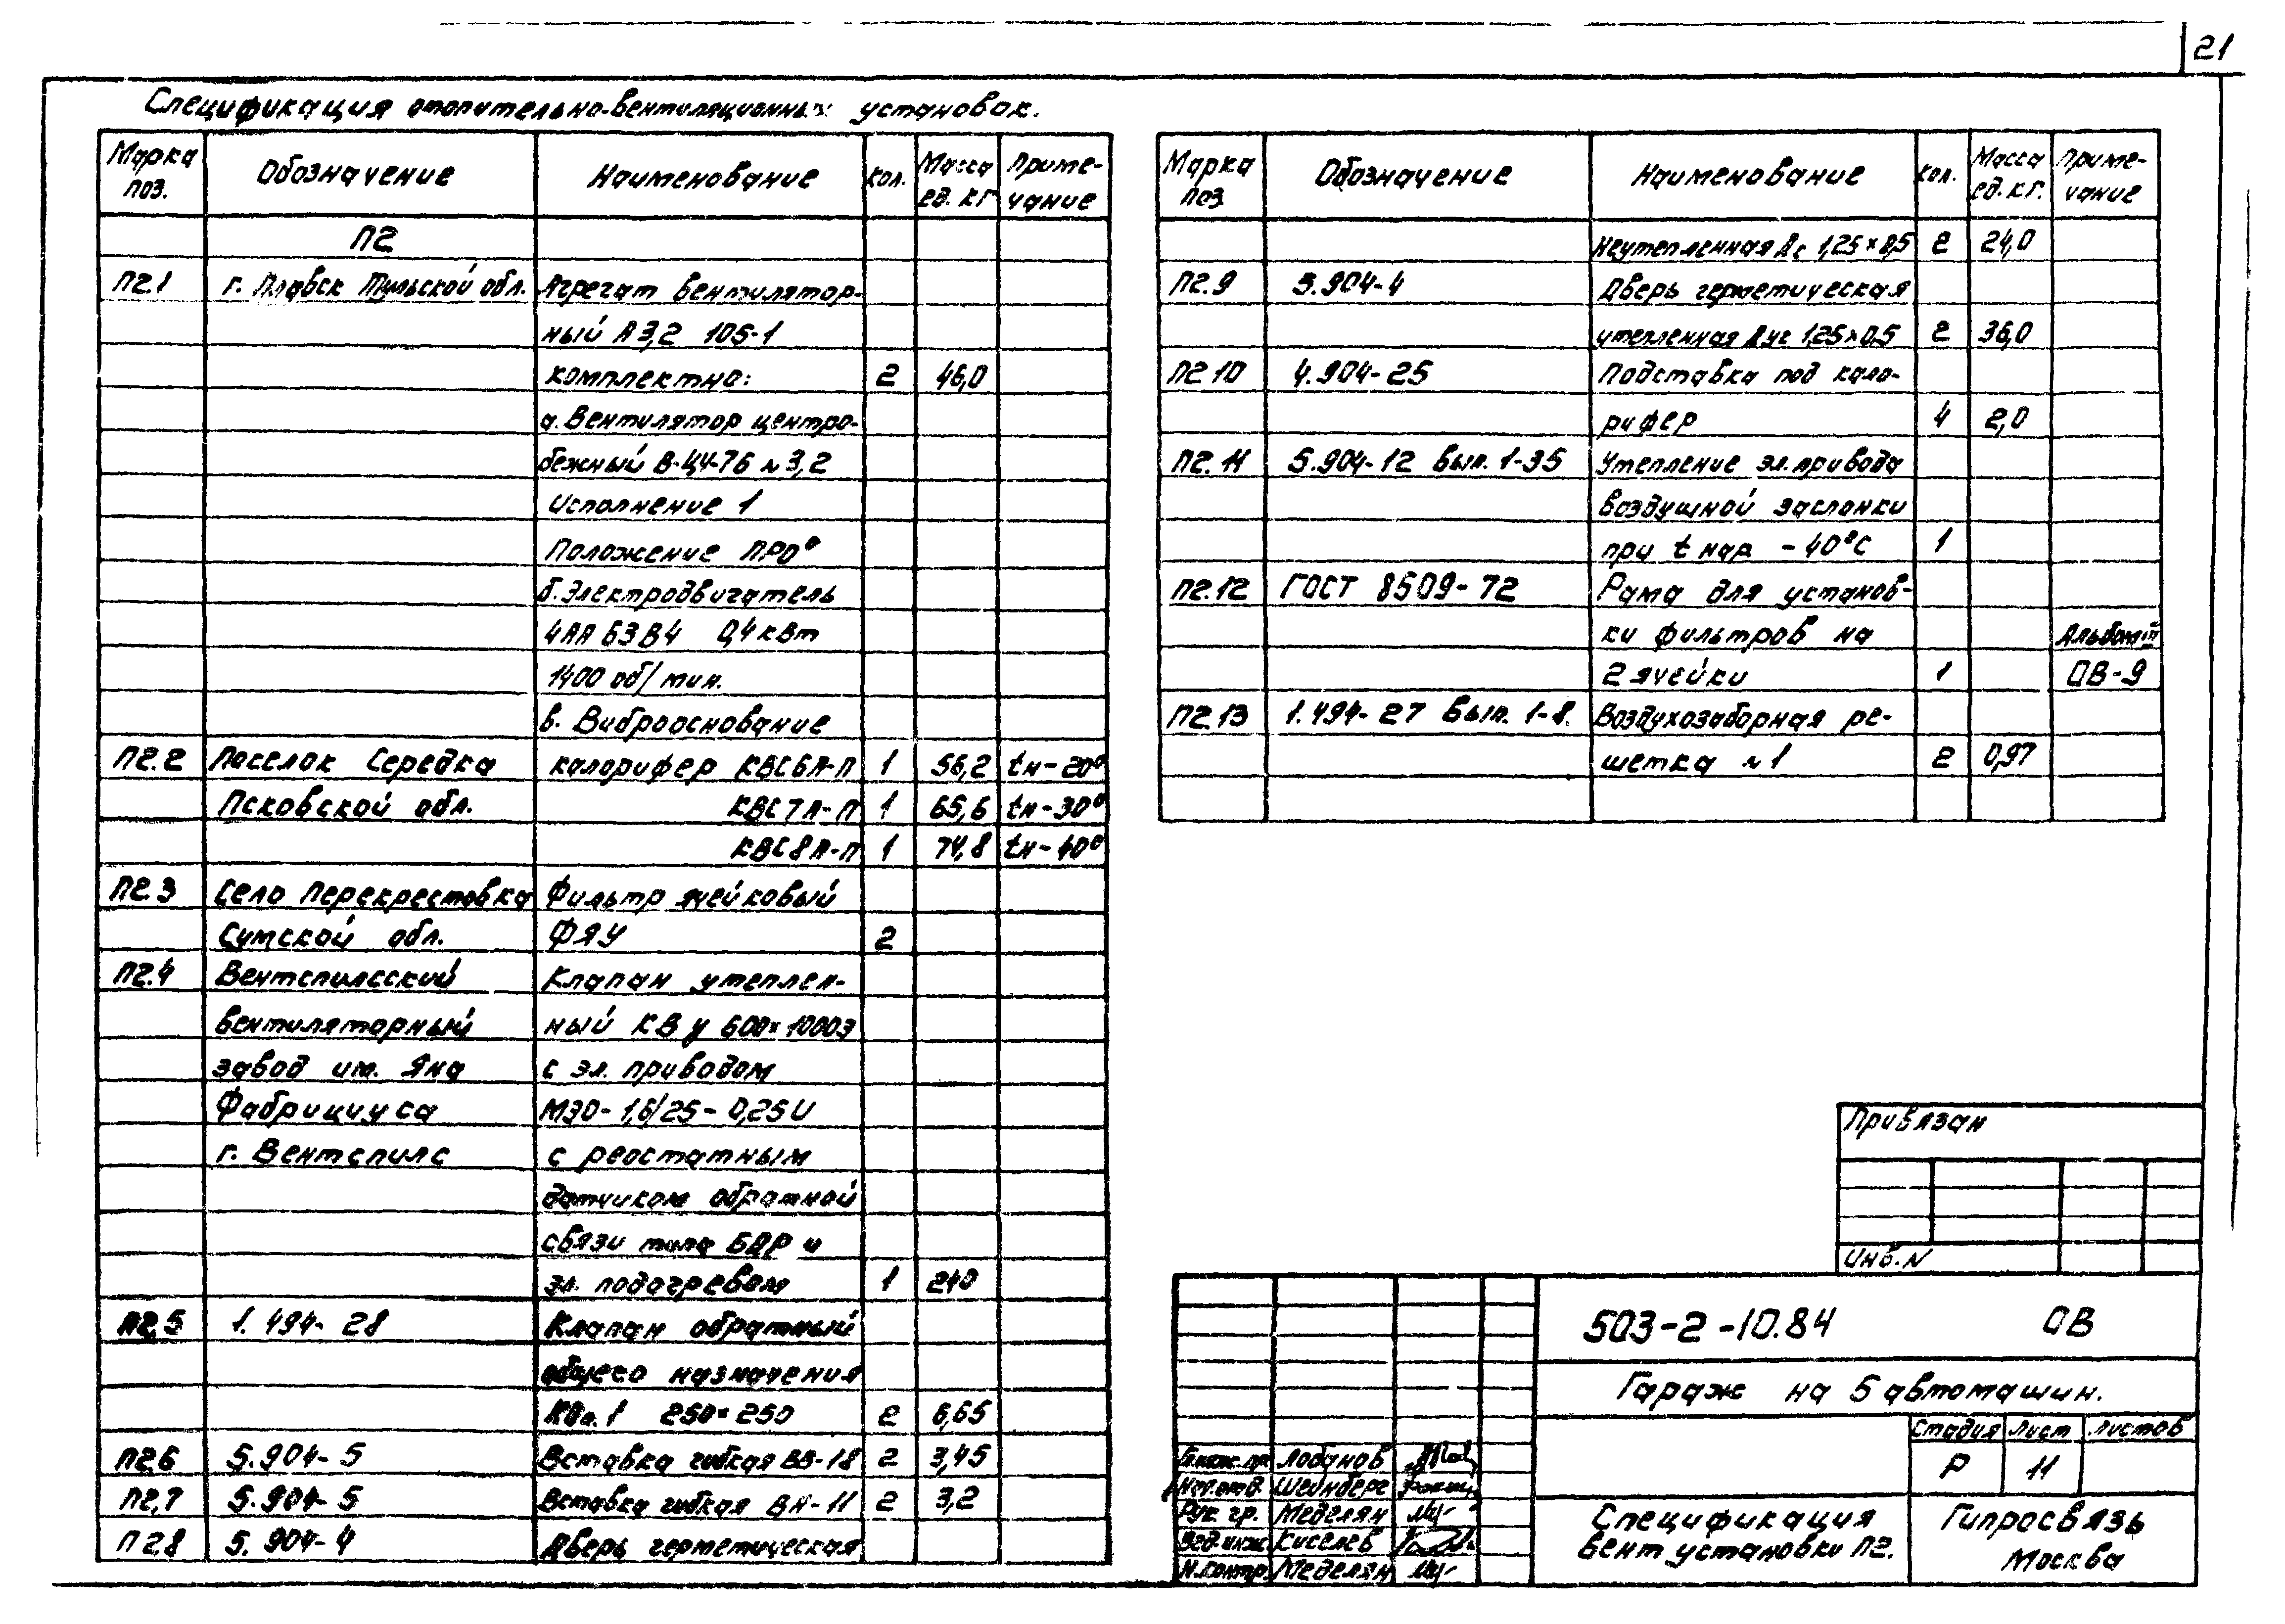 21
Спецификация отопительно-вентиляционных установок.
Марка поз. Обозначение Наименование Кол. Масса ед. кг Приме-чание
П2
П2.1 г. Плавск Тульской обл. Агрегат вентилятор-
ный А 3,2 105-1
комплектно: 2 46,0
а. Вентилятор центро-
бежный В-Ц4-76 № 3,2
Исполнение 1
Положение ПР0°
б. Электродвигатель
4АА 63 В4 0,4 кВт
1400 об/мин.
в. Виброоснование
П2.2 Поселок Середка калорифер КВС6А-П 1 56,2 tн-20°
Псковской обл. КВС7А-П 1 65,6 tн-30°
КВС8А-П 1 74,8 tн-40°
П2.3 Село Перекрестовка Фильтр ячейковый
Сумской обл. ФЯУ 2
П2.4 Вентспилсский Клапан утеплен-
вентиляторный ный КВ у 600×1000Э
завод им. Яна с эл. приводом
Фабрициуса МЭО-1,6/25-0,25И
г. Вентспилс с реостатным
датчиком обратной
связи типа БДР и
эл. подогревом 1 240
П2.5 1. 494- 28 Клапан обратный
общего назначения
КОп.1 250×250 2 6,65
П2.6 5.904-5 Вставка гибкая ВВ-18 2 3,45
П2.7 5.904-5 Вставка гибкая ВН-11 2 3,2
П2.8 5. 904-4 Дверь герметическая
Марка поз. Обозначение Наименование Кол. Масса ед. кг. Приме-чание
неутепленная Дс 1,25×0,5 2 24,0
П2.9 5.904-4 Дверь герметическая
утепленная Дус 1,25×0.5 2 36,0
П2.10 4.904-25 Подставка под кало-
рифер 4 2,0
П2.11 5.904-12 Вып. 1-35 Утепление эл. привода
воздушной заслонки
при t нар -40°С 1
П2.12 ГОСТ 8509-72 Рама для установ-
ки фильтров на Альбом III
2 ячейки 1 ОВ-9
П2.13 1.494-27 Вып. 1-8. Воздухозаборная ре-
шетка №1 2 0,97
Привязан
Инв. N
503-2-10.84 ОВ
Гараж на 5 автомашин.
Стадия Лист Листов
Р 11
Гл.инж.пр. Лобанов
Нач.отд. Шейнберг
Рук. гр. Меделян
Вед.инж. Киселев
Н.контр. Меделян
Спецификация
вент установки П2.
Гипросвязь
Москва